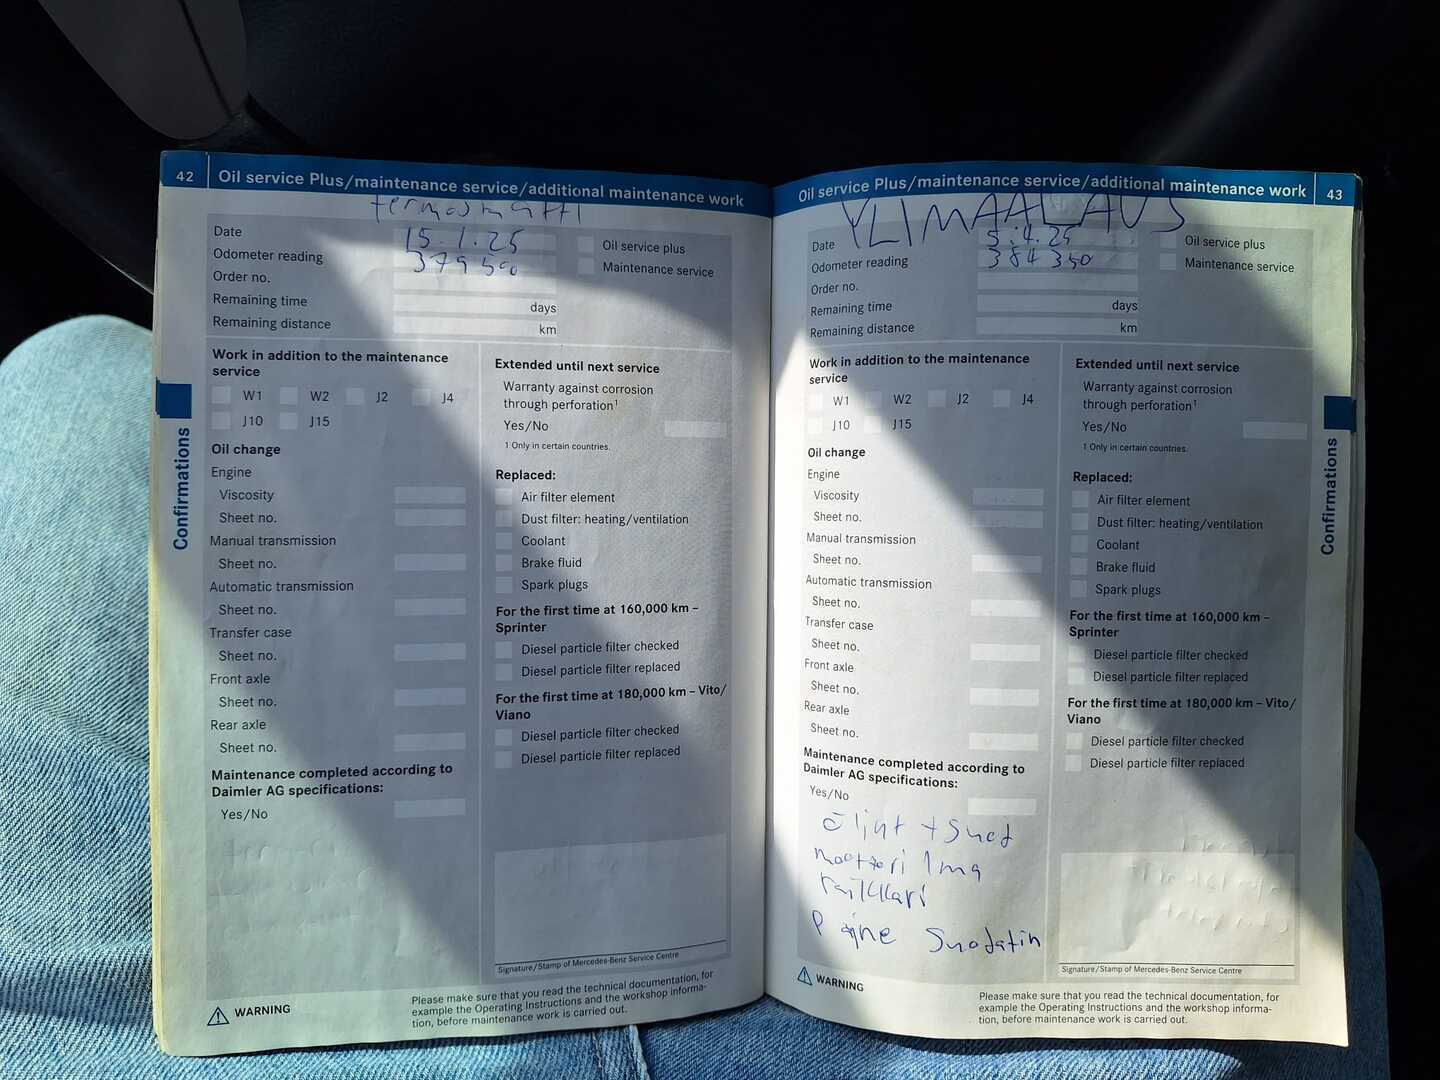 42 Oil service Plus/maintenance service/additional maintenance work
termosmatti
Date 15.1.25
Odometer reading 379 500
Order no.
Remaining time days
Remaining distance km
Oil service plus
Maintenance service
Work in addition to the maintenance
service
W1 W2 J2 J4
J10 J15
Oil change
Engine
Viscosity
Sheet no.
Manual transmission
Sheet no.
Automatic transmission
Sheet no.
Transfer case
Sheet no.
Front axle
Sheet no.
Rear axle
Sheet no.
Maintenance completed according to
Daimler AG specifications:
Yes/No
Extended until next service
Warranty against corrosion
through perforation¹
Yes/No
1 Only in certain countries.
Replaced:
Air filter element
Dust filter: heating/ventilation
Coolant
Brake fluid
Spark plugs
For the first time at 160,000 km –
Sprinter
Diesel particle filter checked
Diesel particle filter replaced
For the first time at 180,000 km – Vito/
Viano
Diesel particle filter checked
Diesel particle filter replaced
Signature/Stamp of Mercedes-Benz Service Centre
WARNING
Please make sure that you read the technical documentation, for
example the Operating Instructions and the workshop informa-
tion, before maintenance work is carried out.
Confirmations
Oil service Plus/maintenance service/additional maintenance work 43
YLIMAALAUS
Date 5.4.25
Odometer reading 384 350
Order no.
Remaining time days
Remaining distance km
Oil service plus
Maintenance service
Work in addition to the maintenance
service
W1 W2 J2 J4
J10 J15
Oil change
Engine
Viscosity
Sheet no.
Manual transmission
Sheet no.
Automatic transmission
Sheet no.
Transfer case
Sheet no.
Front axle
Sheet no.
Rear axle
Sheet no.
Maintenance completed according to
Daimler AG specifications:
Yes/No
Öljyt + Suod
moottori Ilma
raitkkari
Paine Suodatin
Extended until next service
Warranty against corrosion
through perforation¹
Yes/No
1 Only in certain countries.
Replaced:
Air filter element
Dust filter: heating/ventilation
Coolant
Brake fluid
Spark plugs
For the first time at 160,000 km –
Sprinter
Diesel particle filter checked
Diesel particle filter replaced
For the first time at 180,000 km – Vito/
Viano
Diesel particle filter checked
Diesel particle filter replaced
Signature/Stamp of Mercedes-Benz Service Centre
WARNING
Please make sure that you read the technical documentation, for
example the Operating Instructions and the workshop informa-
tion, before maintenance work is carried out.
Confirmations